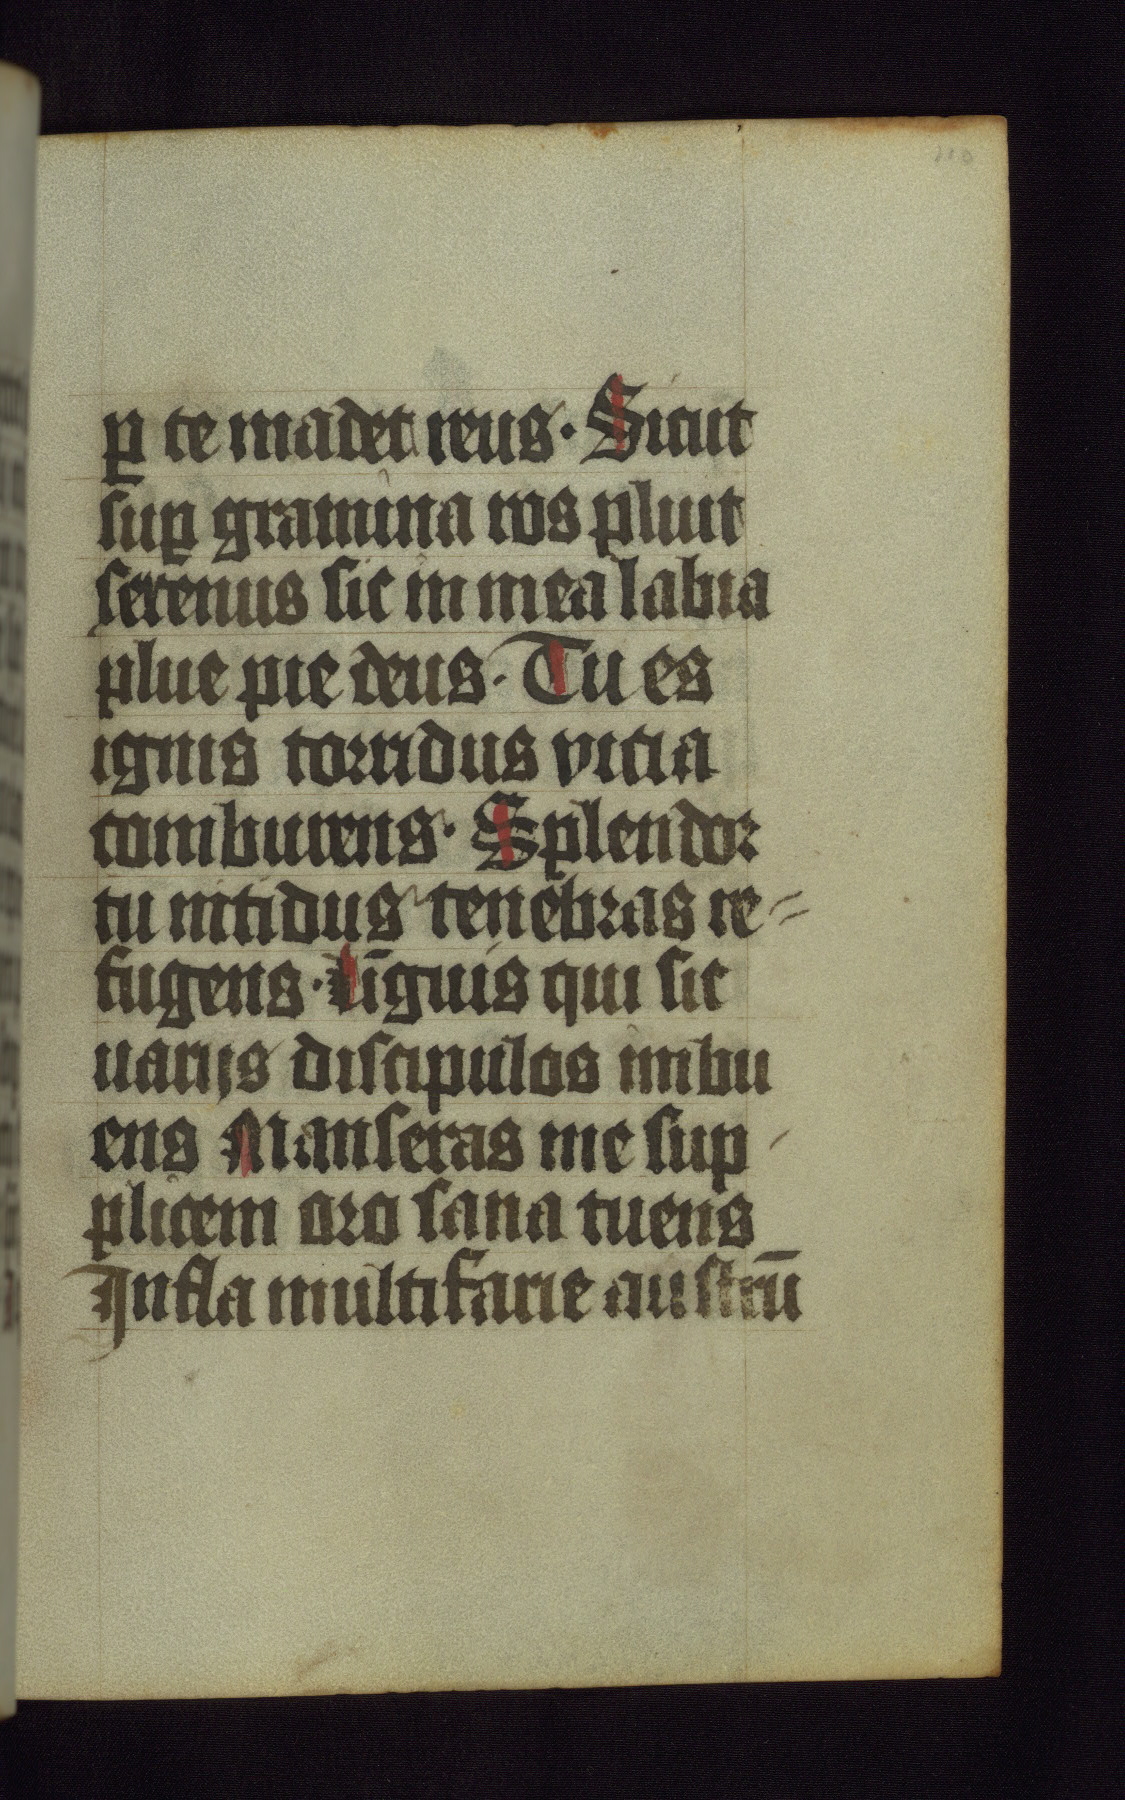 ꝑ te madet reus. Sicut
suꝑ gramina ros pluit
serenus sic in mea labia
plue pie deus. Tu es
ignis torridus vicia
comburens. Splendor
tu nitidus tenebras re=
fugens. Līguis qui sic
uarijs discipulos imbu
ens Manseras me sup-
plicem oro sana tuens
Infla multifarie austrū